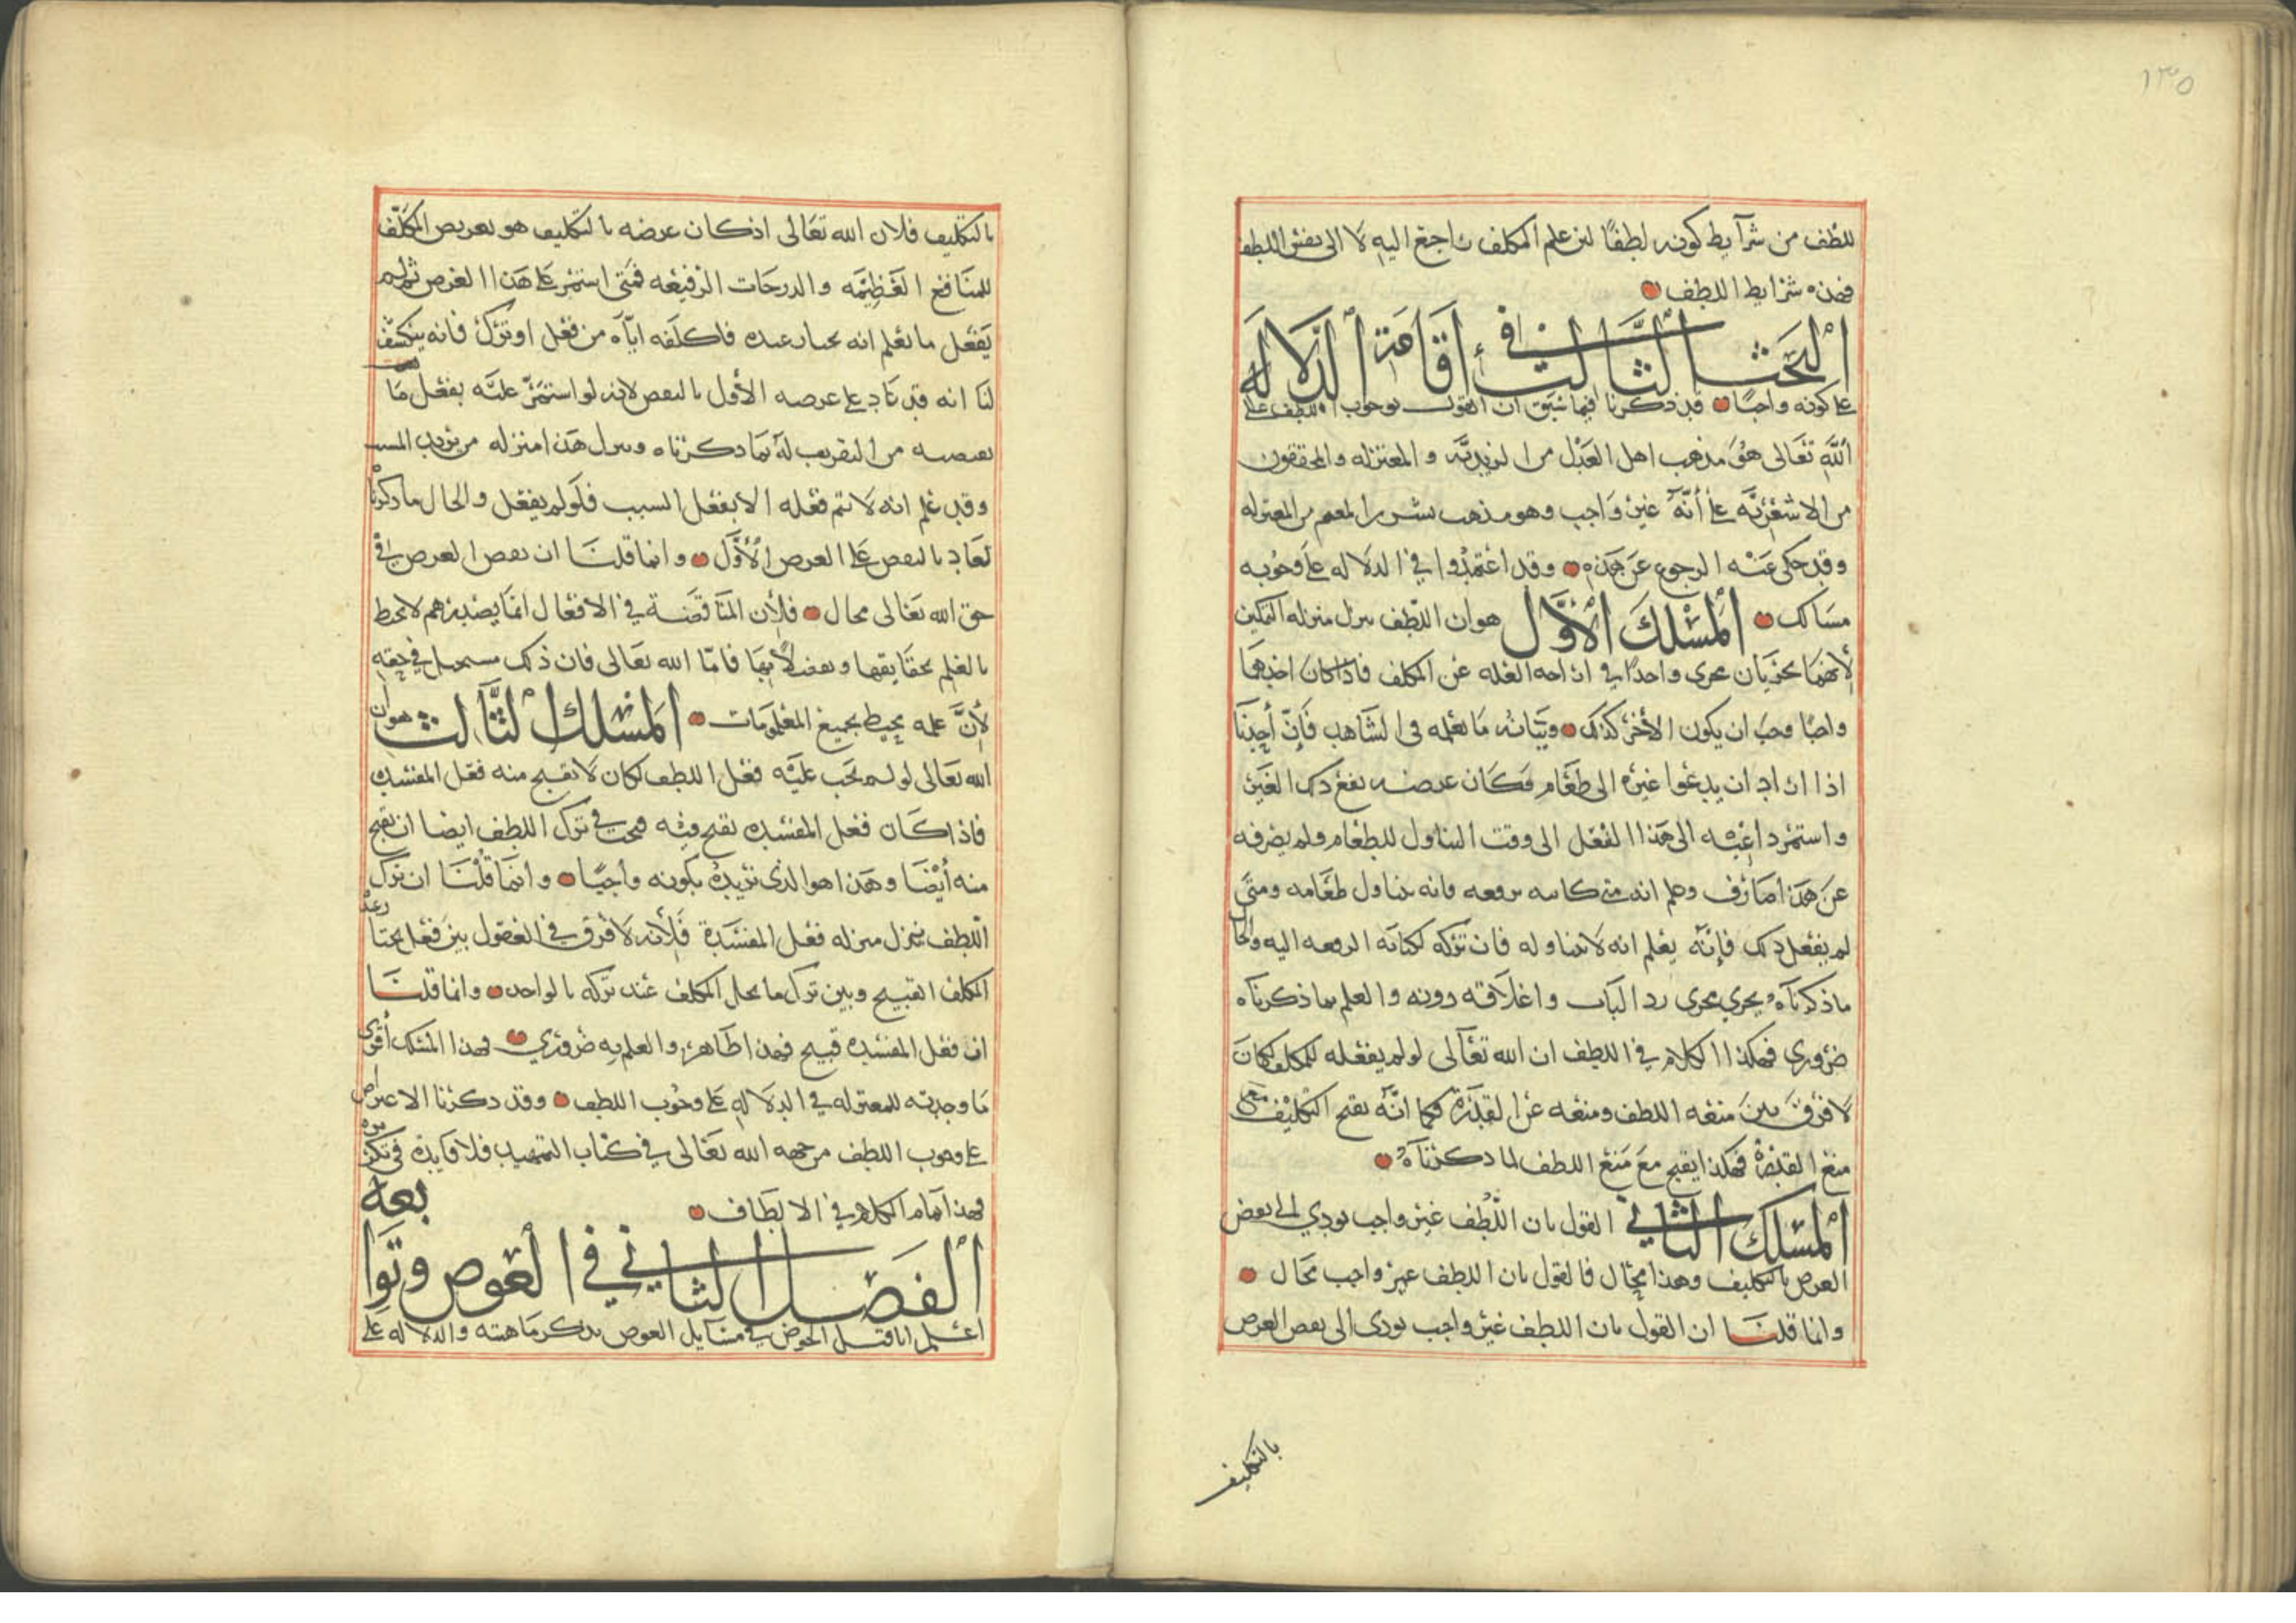 ١٣٥
للطف من شرآيط كونه لطفًا لان علم المكلف راجع اليه لا الى نفس اللطف
فهذه شرايط اللطف
البحث الثالث في أقامة الدلاله
على كونه واجبًا قد ذكرنا فيما سبق ان القول بوجوب اللطف على
الله تعالى هو مذهب اهل العدل من الزيديّه والمعتزله والمحققون
من الاشعريّه على أنّه غير واجب وهو مذهب بشر بن المعتمر من المعتزله
وقد حكى عنه الرجوع عن هذه وقد اعتمدوا في الدلاله على وجوبه
مسالك المسلك الأوّل هو ان اللطف ينزل منزله التمكين
لأنهما يجريان مجرى واحدًا في ازاحه العله عن المكلف فاذا كان احدهما
واجبًا وجب ان يكون الأخر كذلك وبيانه ما نعلمه في الشاهد فإنّ أحدنا
اذا اراد ان يدعوا غيره الى طعام وكان غرضه نفع ذلك الغير
واستمر داعيه الى هذا الفعل الى وقت التناول للطعام ولم يصرفه
عن هذا صارف وعلم انه متى كاتبه برقعه فانه يتناول طعامه ومتى
لم يفعل ذلك فإنّه يعلم انه لا يتناوله فان تركه لكتابه الرقعه اليه والحال
ما ذكرناه يجري مجرى رد الباب واغلاقه دونه والعلم بما ذكرناه
ضروري فهكذا الكلام في اللطف ان الله تعالى لو لم يفعله للمكلف لكان
لا فرق بين منعه اللطف ومنعه عن القدرة فكما انّه يقبح التكليف مع
منع القدرة فهكذا يقبح مع منع اللطف لما ذكرناه
المسلك الثاني القول بان اللّطف غير واجب يودي الى نقض
الغرض بالتكليف وهذا محال فالقول بان اللطف غير واجب محال
وانما قلنا ان القول بان اللطف غير واجب يودى الى نقض الغرض
بالتكليف
بالتكليف فلان الله تعالى اذ كان غرضه بالتكليف هو تعريض المكلّف
للمنافع العظيمه والدرجات الرفيعه فمتى استمر على هذا الغرض ثم لم
يفعل ما يعلم انه يختار عنده ما كلفه ايّاه من فعل او ترك فانه ينكشف
لنا انه قد عاد على غرضه الأول بالنقض لانه لو استمرّ عليه يفعل ما
يقتضيه من التقريب له بما ذكرناه وينزل هذا منزله من يريد المسبب
وقد علم انه لا يتم فعله الا بفعل السبب فلو لم يفعل والحال ما ذكرنا
لعاد بالنقض على الغرض الأوّل وانما قلنا ان نقض الغرض في
حق الله تعالى محال فلأن المناقضة في الافعال انما يصدر ممن لا يحيط
بالعلم بحقايقها فامّا الله تعالى فان ذلك مستحيل في حقه
لأنَّ علمه محيط بجميع المعلومات المسلك الثالث هو ان
الله تعالى لو لم يجب عليه فعل اللطف لكان لا يقبح منه فعل المفسده
فاذا كان فعل المفسده يقبح منه وجب في ترك اللطف ايضا ان يقبح
منه أيضا وهذا هو الذى نريده بكونه واجبًا وانما قلنا ان ترك
اللطف ينزل منزله فعل المفسدة فلأنه لا فرق في العقول بين فعل يختار عنده
المكلف القبيح وبين ترك ما يخل المكلف عند تركه بالواجب وانما قلنا
ان فعل المفسده قبيح فهذا ظاهر والعلم به ضروري فهذا المسلك أقوى
ما وجدته للمعتزله في الدلاله على وجوب اللطف وقد ذكرنا الاعتراض
على وجوب اللطف من جهه الله تعالى في كتاب التمهيد فلا فايدة في تكريره
فهذا تمام الكلام في الالطاف
الفصل الثاني في العوض وتوابعه
اعلم انا قبل الخوض في مسايل العوض نذكر ماهيته والدلاله على